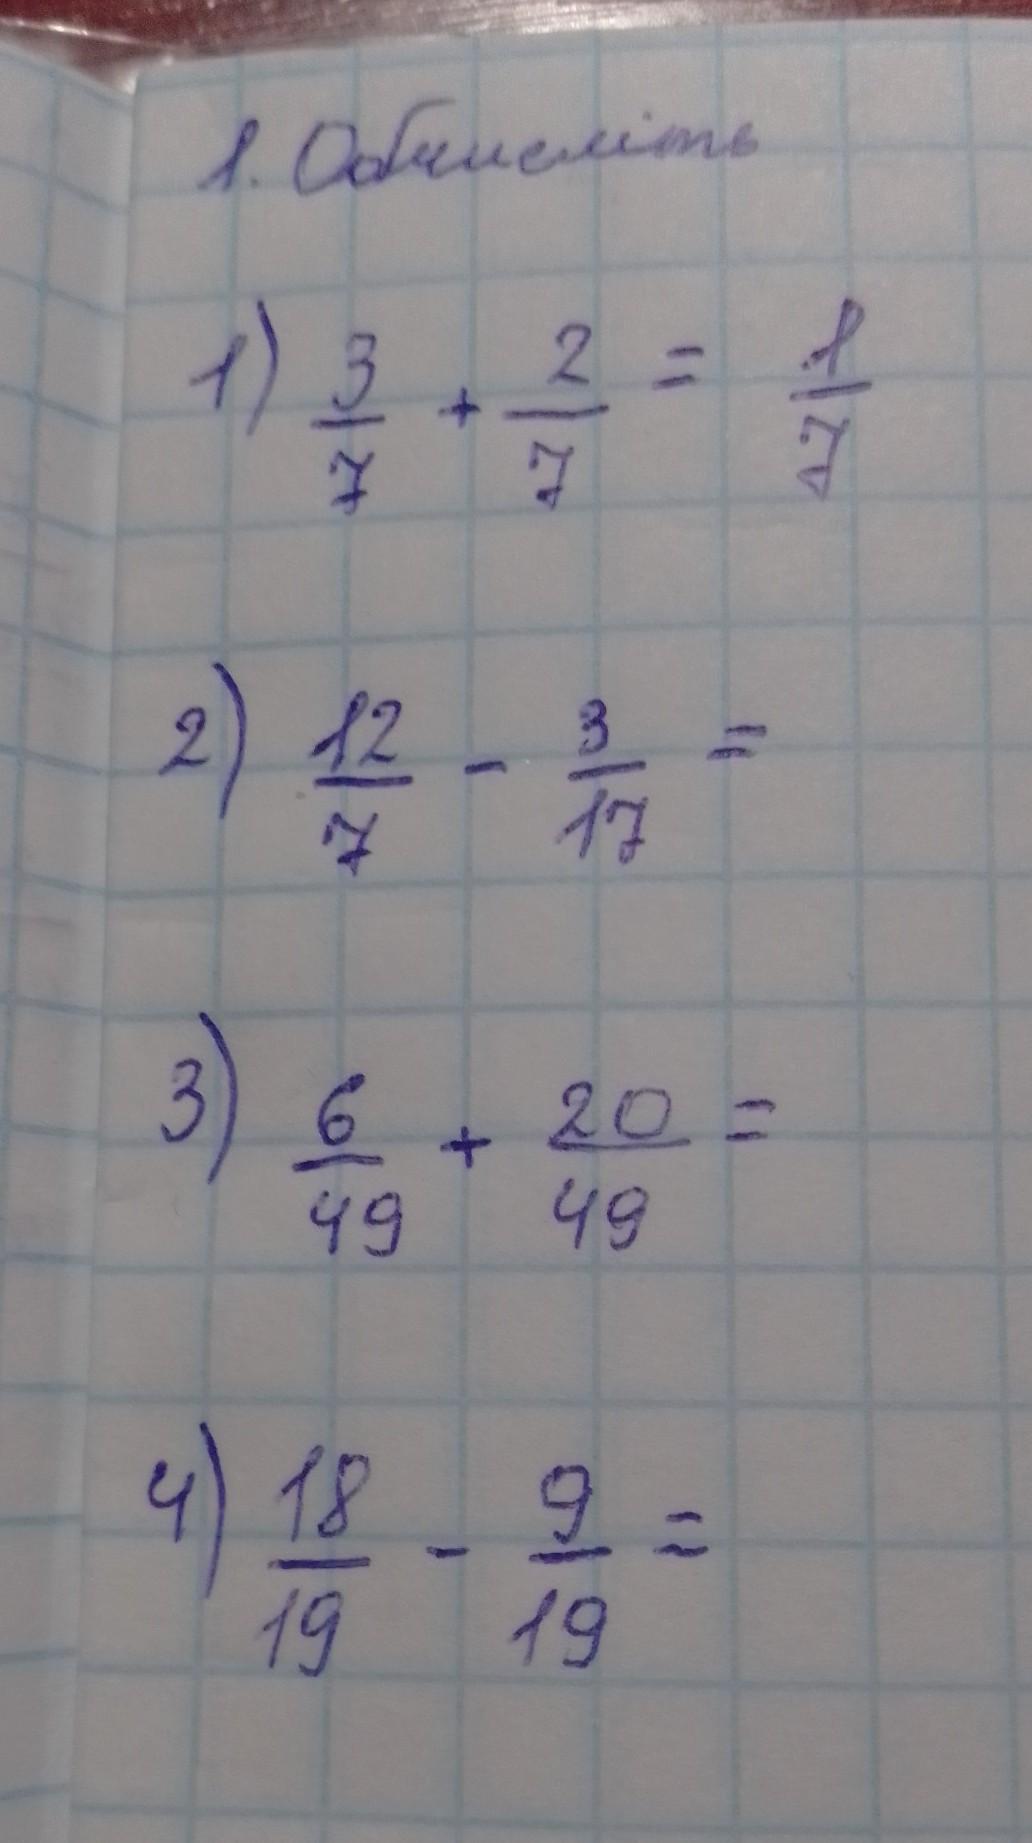 1. Обчисліть
1) 3/7 + 2/7 = 1/7
2) 12/7 - 3/17 =
3) 6/49 + 20/49 =
4) 18/19 - 9/19 =